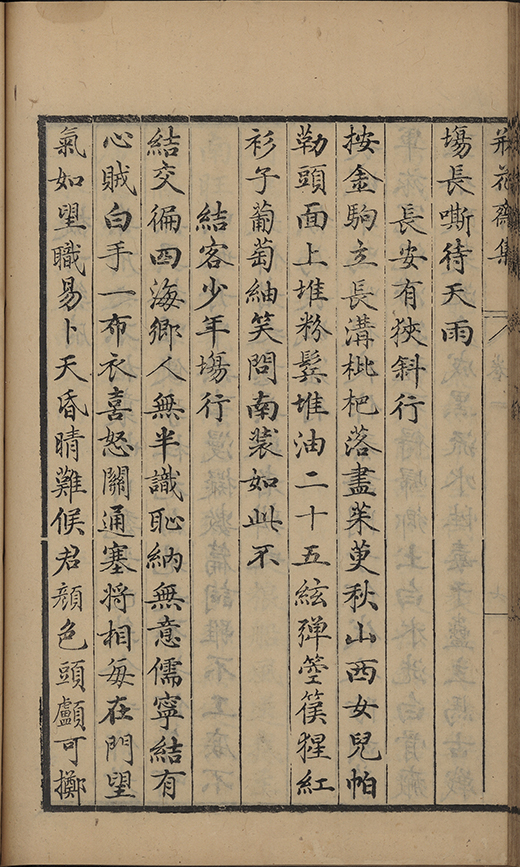 瓶花齋集 卷一
塲長嘶待天雨
長安有狹斜行
按金駒立長溝枇杷落盡茱萸秋山西女兒帕
勒頭面上堆粉鬂堆油二十五絃弹箜篌猩紅
衫子葡萄紬笑問南裝如此不
結客少年塲行
結交徧四海鄉人無半識恥納無意儒寧結有
心賊白手一布衣喜怒關通塞将相每在門望
氣如望職易卜天昏晴難候君顔色頭顱可擲